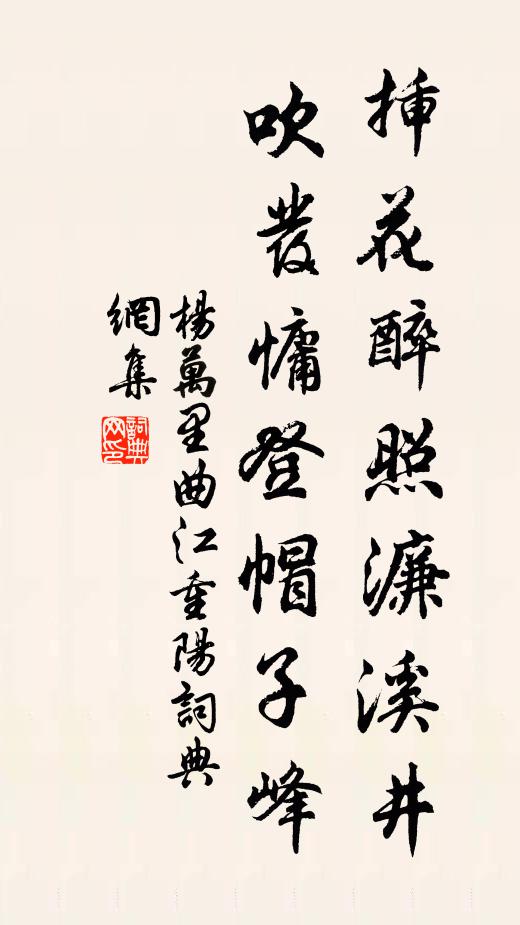 挿花醉照濂溪井
吹髮慵登帽子峰
楊萬里曲江重陽詞典
網集
詞典
网印